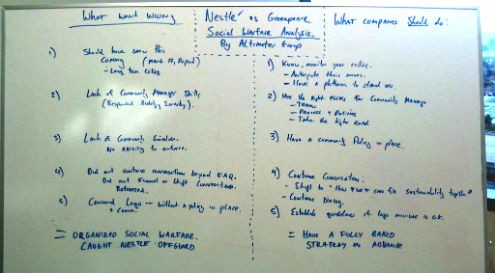 What Went Wrong
Nestle vs Greenpeace
Social Warfare Analysis
By Altimeter Group
What companies Should do:
1) Should have seen this
Coming
- Long time critics
2) Lack of Community Manager Skills
(Respond Rudely).
3) Lack of Community Guidelines.
No ability to enforce.
4) Did not continue conversation beyond FAQ.
Did not or Shift Conversation.
Retreated.
5) Logo - without a policy in place.
= ORGANIZED SOCIAL WARFARE.
CAUGHT NESTLE OFFGUARD
1) Know, monitor your critics.
- Anticipate their moves.
- Have a platform to
2) Hire the right for Community Manager
- Team
- Process + Policies
- Take the higher Road
3) Have a community Policy in place.
4) Continue Conversation:
- Shift to "How we can fix Sustainability together"
- Continue Dialog.
5) Establish guidelines if logo mis-use is OK.
= HAVE A FULLY BAKED
STRATEGY IN ADVANCE